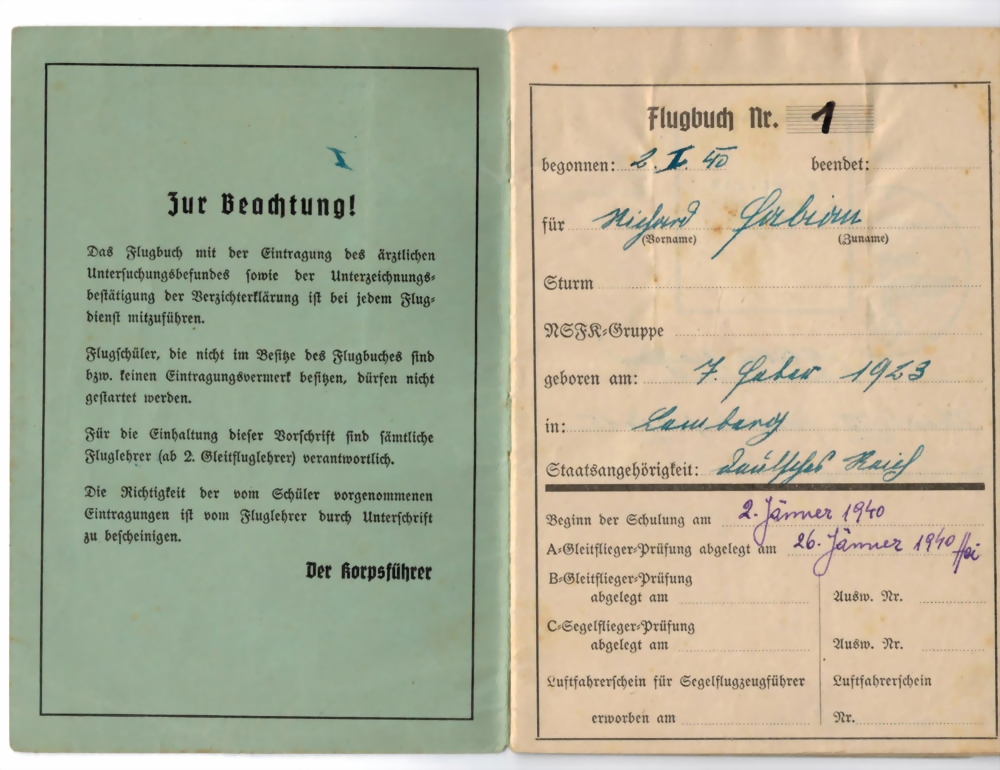 I
Zur Beachtung!
Das Flugbuch mit der Eintragung des ärztlichen
Untersuchungsbefundes sowie der Unterzeichnungs-
bestätigung der Verzichterklärung ist bei jedem Flug-
dienst mitzuführen.
Flugschüler, die nicht im Besitze des Flugbuches sind
bzw. keinen Eintragungsvermerk besitzen, dürfen nicht
gestartet werden.
Für die Einhaltung dieser Vorschrift sind sämtliche
Fluglehrer (ab 2. Gleitfluglehrer) verantwortlich.
Die Richtigkeit der vom Schüler vorgenommenen
Eintragungen ist vom Fluglehrer durch Unterschrift
zu bescheinigen.
Der Korpsführer
Flugbuch Nr. 1
begonnen: 2. I. 40 beendet:
für Richard Fabian
(Vorname) (Zuname)
Sturm
NSFK-Gruppe
geboren am: 7. 1923
in: Lemberg
Staatsangehörigkeit: deutsches Reich
Beginn der Schulung am 2. Jänner 1940
A-Gleitflieger-Prüfung abgelegt am 26. Jänner 1940
B-Gleitflieger-Prüfung
abgelegt am Ausw. Nr.
C-Segelflieger-Prüfung
abgelegt am Ausw. Nr.
Luftfahrerschein für Segelflugzeugführer Luftfahrerschein
erworben am Nr.